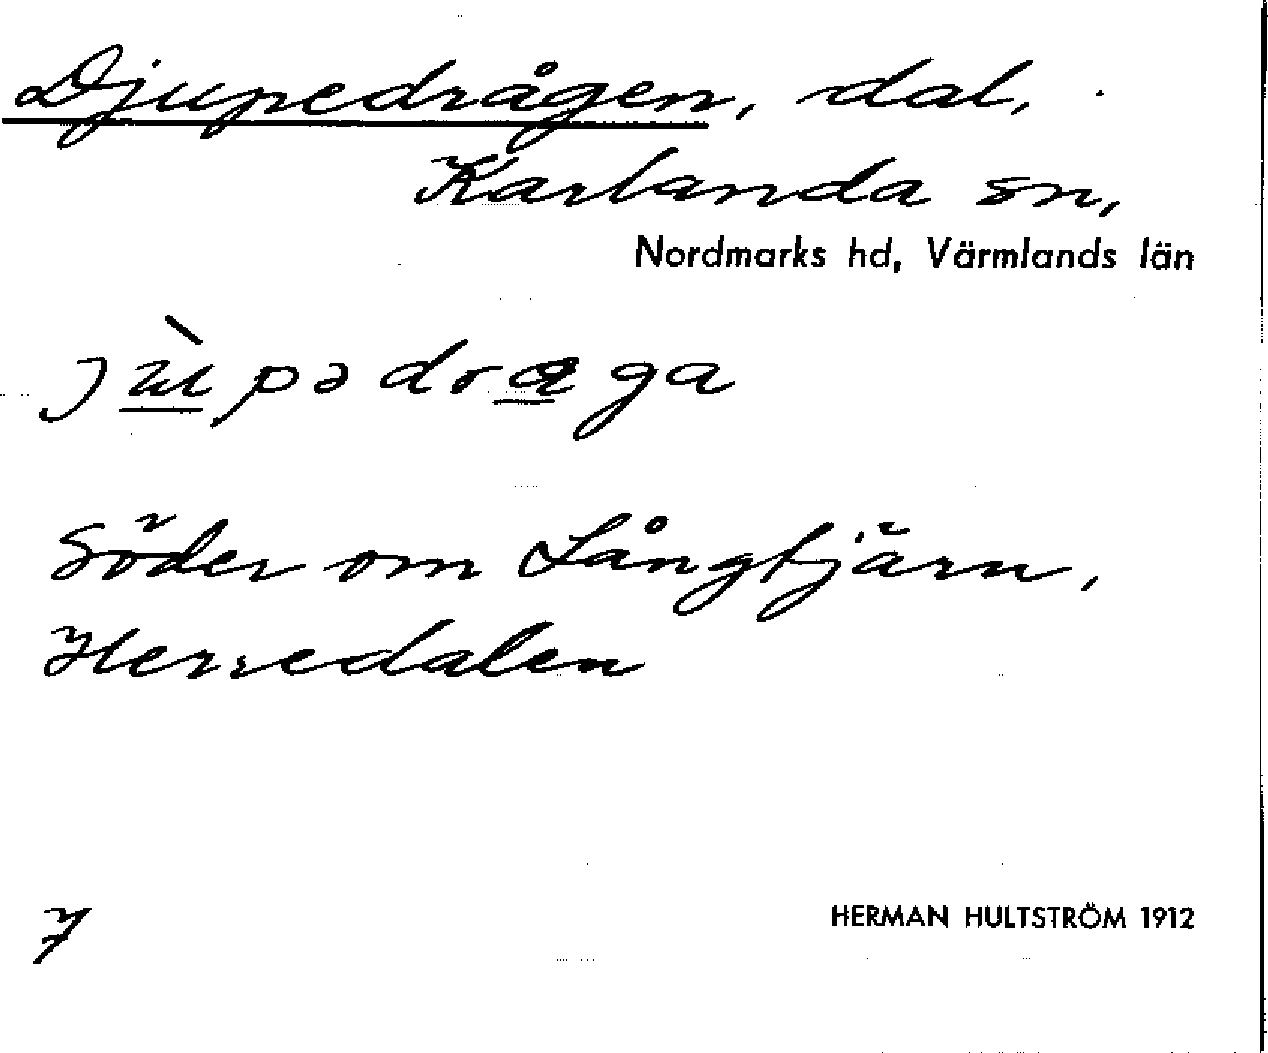 Djupedrågen, dal,
Karlanda sn,
Nordmarks hd, Värmlands län
Söder om Långtjärn,
Herredalen
7
HERMAN HULTSTRÖM 1912